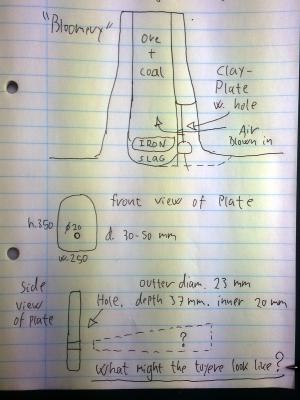 "Bloomery"
Ore
+
coal
Clay-
Plate
w. hole
Air
blown in
IRON
SLAG
front view of Plate
h.350
ø20
d. 30-50 mm
w.250
side
view
of plate
outter diam. 23 mm
Hole, depth 37mm. inner 20 mm
?
What might the tuyere look like?